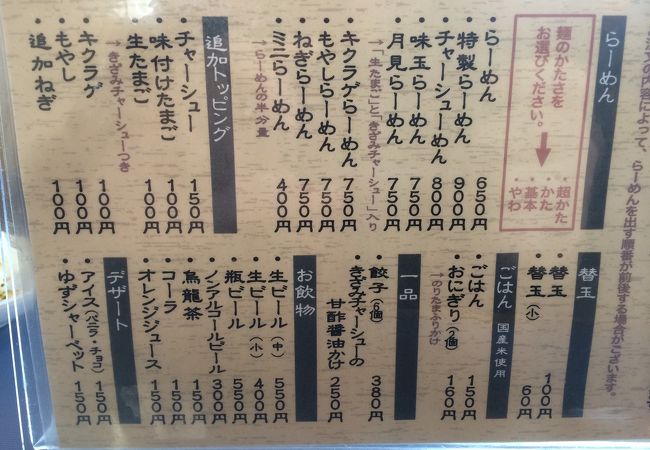 文の内容によって、らーめんを出す順番が前後する場合がございます。
らーめん
麺のかたさを
お選びください。
→
・超かた
・かた
・基本
・やわ
・らーめん 650円
・特製らーめん 900円
・チャーシューめん 800円
・味玉らーめん 750円
・月見らーめん 750円
→「生たまご」と「きざみチャーシュー」入り
・キクラゲらーめん 750円
・もやしらーめん 750円
・ねぎらーめん 750円
・ミニらーめん 400円
→らーめんの半分量
追加トッピング
・チャーシュー 150円
・味付けたまご 100円
・生たまご 100円
→きざみチャーシューつき
・キクラゲ 100円
・もやし 100円
・追加ねぎ 100円
替玉
・替玉 100円
・替玉(小) 60円
ごはん 国産米使用
・ごはん 150円
・おにぎり(2個) 160円
→のりたまふりかけ
一品
・餃子(6個) 380円
・きざみチャーシューの
甘酢醤油かけ 250円
お飲物
・生ビール(中) 550円
・生ビール(小) 400円
・瓶ビール 550円
・ノンアルコールビール 300円
・烏龍茶 150円
・コーラ 150円
・オレンジジュース 150円
デザート
・アイス(バニラ・チョコ) 150円
・ゆずシャーベット 150円